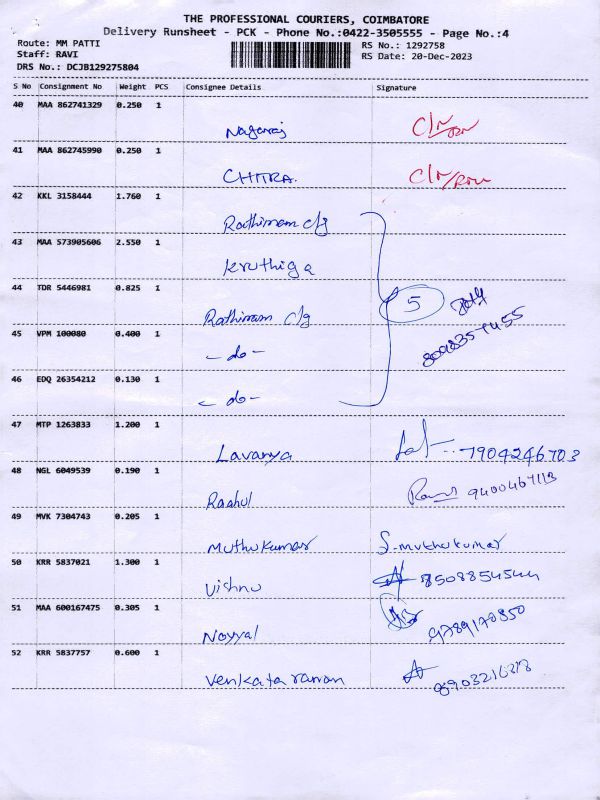 THE PROFESSIONAL COURIERS, COIMBATORE
Delivery Runsheet - PCK - Phone No.:0422-3505555 - Page No.:4
Route: MM PATTI
Staff: RAVI
DRS No.: DCJB129275804
RS No.: 1292758
RS Date: 20-Dec-2023
S No Consignment No Weight PCS Consignee Details Signature
40 MAA 862741329 0.250 1
Nagaraj
41 MAA 862745990 0.250 1
CHITRA.
42 KKL 3158444 1.760 1
Rathinam clg
43 MAA 573905606 2.550 1
Kruthiga
44 TDR 5446981 0.825 1
Rathinam clg 5
45 VPM 100080 0.400 1
- do -
46 EDQ 26354212 0.130 1
- do -
47 MTP 1263833 1.200 1
Lavanya 7904246703
48 NGL 6049539 0.190 1
Raahul 9400467113
49 MVK 7304743 0.205 1
Muthukumar S.muthukumar
50 KRR 5837021 1.300 1
Vishnu 8508854544
51 MAA 600167475 0.305 1
Noyyal 9789170850
52 KRR 5837757 0.600 1
Venkata raman 8903216218